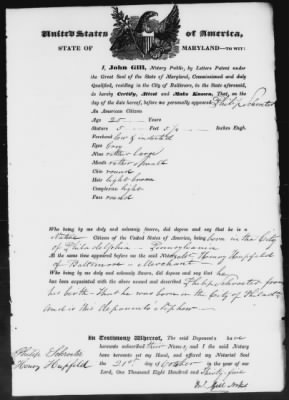 United States of America,
STATE OF MARYLAND—TO WIT:
I, John Gill, Notary Public, by Letters Patent under
the Great Seal of the State of Maryland, Commissioned and duly
Qualified, residing in the City of Baltimore, in the State aforesaid,
do hereby Certify, Attest and Make Known, That, on the
day of the date hereof, before me personally appeared Philip
An American Citizen
Age 25 Years
Stature 5 Feet Inches Engh.
Forehead low &
Eyes
Nose rather large
Mouth rather small
Chin round
Hair light brown
Complexion light
Face
Who being by me duly and solemnly Sworn, did depose and say that he is a
Native Citizen of the United States of America, being born in the City
of Philadelphia - Pennsylvania
At the same time appeared before me the said Notary Henry Huppfeld
of Baltimore - Merchant
Who being by me duly and solemnly Sworn, did depose and say that he
has been acquainted with the above named and described Philip from
his birth. That he was born in the City of
and is this Deponent's Nephew
In Testimony Whereof, The said Deponents have
hereunto subscribed their Names, and the said Notary
have hereunto set my Hand, and affixed my Notarial Seal
the 21st day of October in the year of our
Lord, One Thousand Eight Hundred and Thirty five
Philip
Henry Huppfeld
Gill